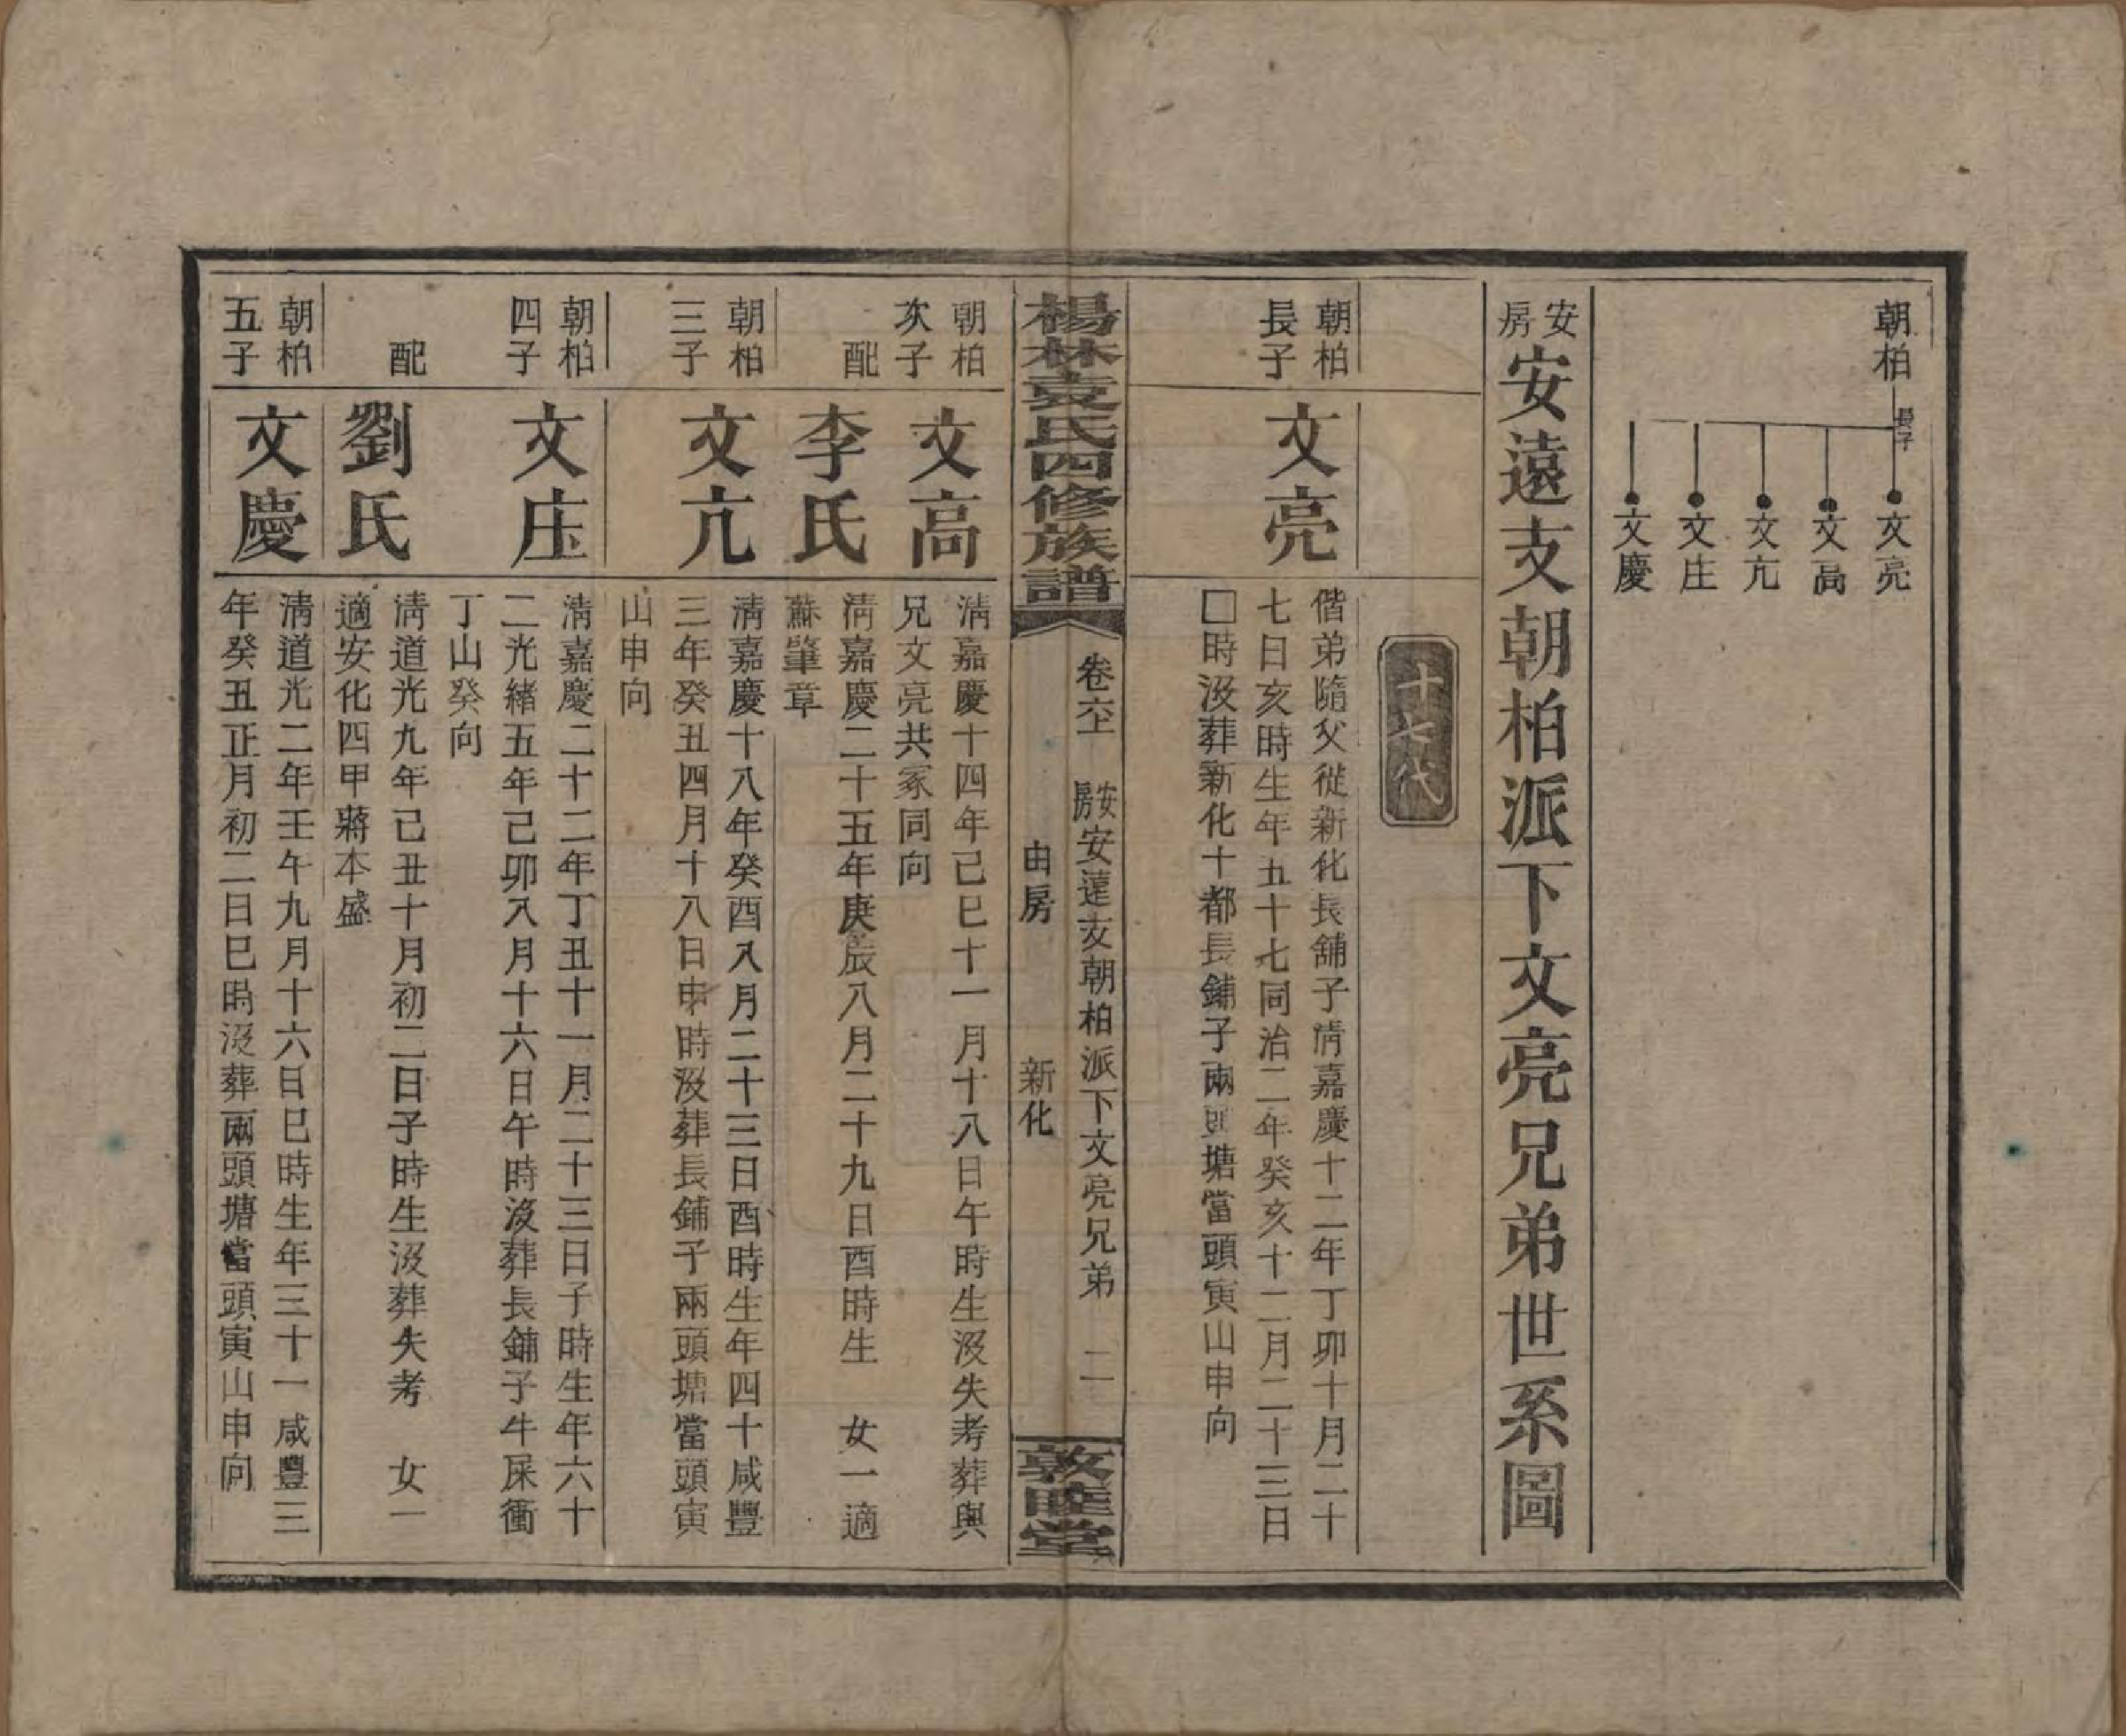 朝柏
長子
文亮
文高
文亢
文庄
文慶
安房
安遠支朝柏派下文亮兄弟世系圖
十七代
朝柏長子
文亮
偕弟隨父從新化長舖子淸嘉慶十二年丁卯十月二十
七日亥時生年五十七同治二年癸亥十二月二十三日
□時沒葬新化十都長鋪子兩頭塘當頭寅山申向
楊林袁氏四修族譜
卷六上
安房安遠支朝柏派下文亮兄弟
二
由房
新化
敦睦堂
朝柏次子
文高
淸嘉慶十四年己巳十一月十八日午時生沒失考葬與
兄文亮共冢同向
配
李氏
淸嘉慶二十五年庚辰八月二十九日酉時生 女一適
蘇肇章
朝柏三子
文亢
淸嘉慶十八年癸酉八月二十三日酉時生年四十咸豐
三年癸丑四月十八日申時沒葬長鋪子兩頭塘當頭寅
山申向
朝柏四子
文庄
淸嘉慶二十二年丁丑十一月二十三日子時生年六十
二光緒五年己卯八月十六日午時沒葬長鋪子牛屎衝
丁山癸向
配
劉氏
淸道光九年己丑十月初二日子時生沒葬失考 女一
適安化四甲蔣本盛
朝柏五子
文慶
淸道光二年壬午九月十六日巳時生年三十一咸豐三
年癸丑正月初二日巳時沒葬兩頭塘當頭寅山申向